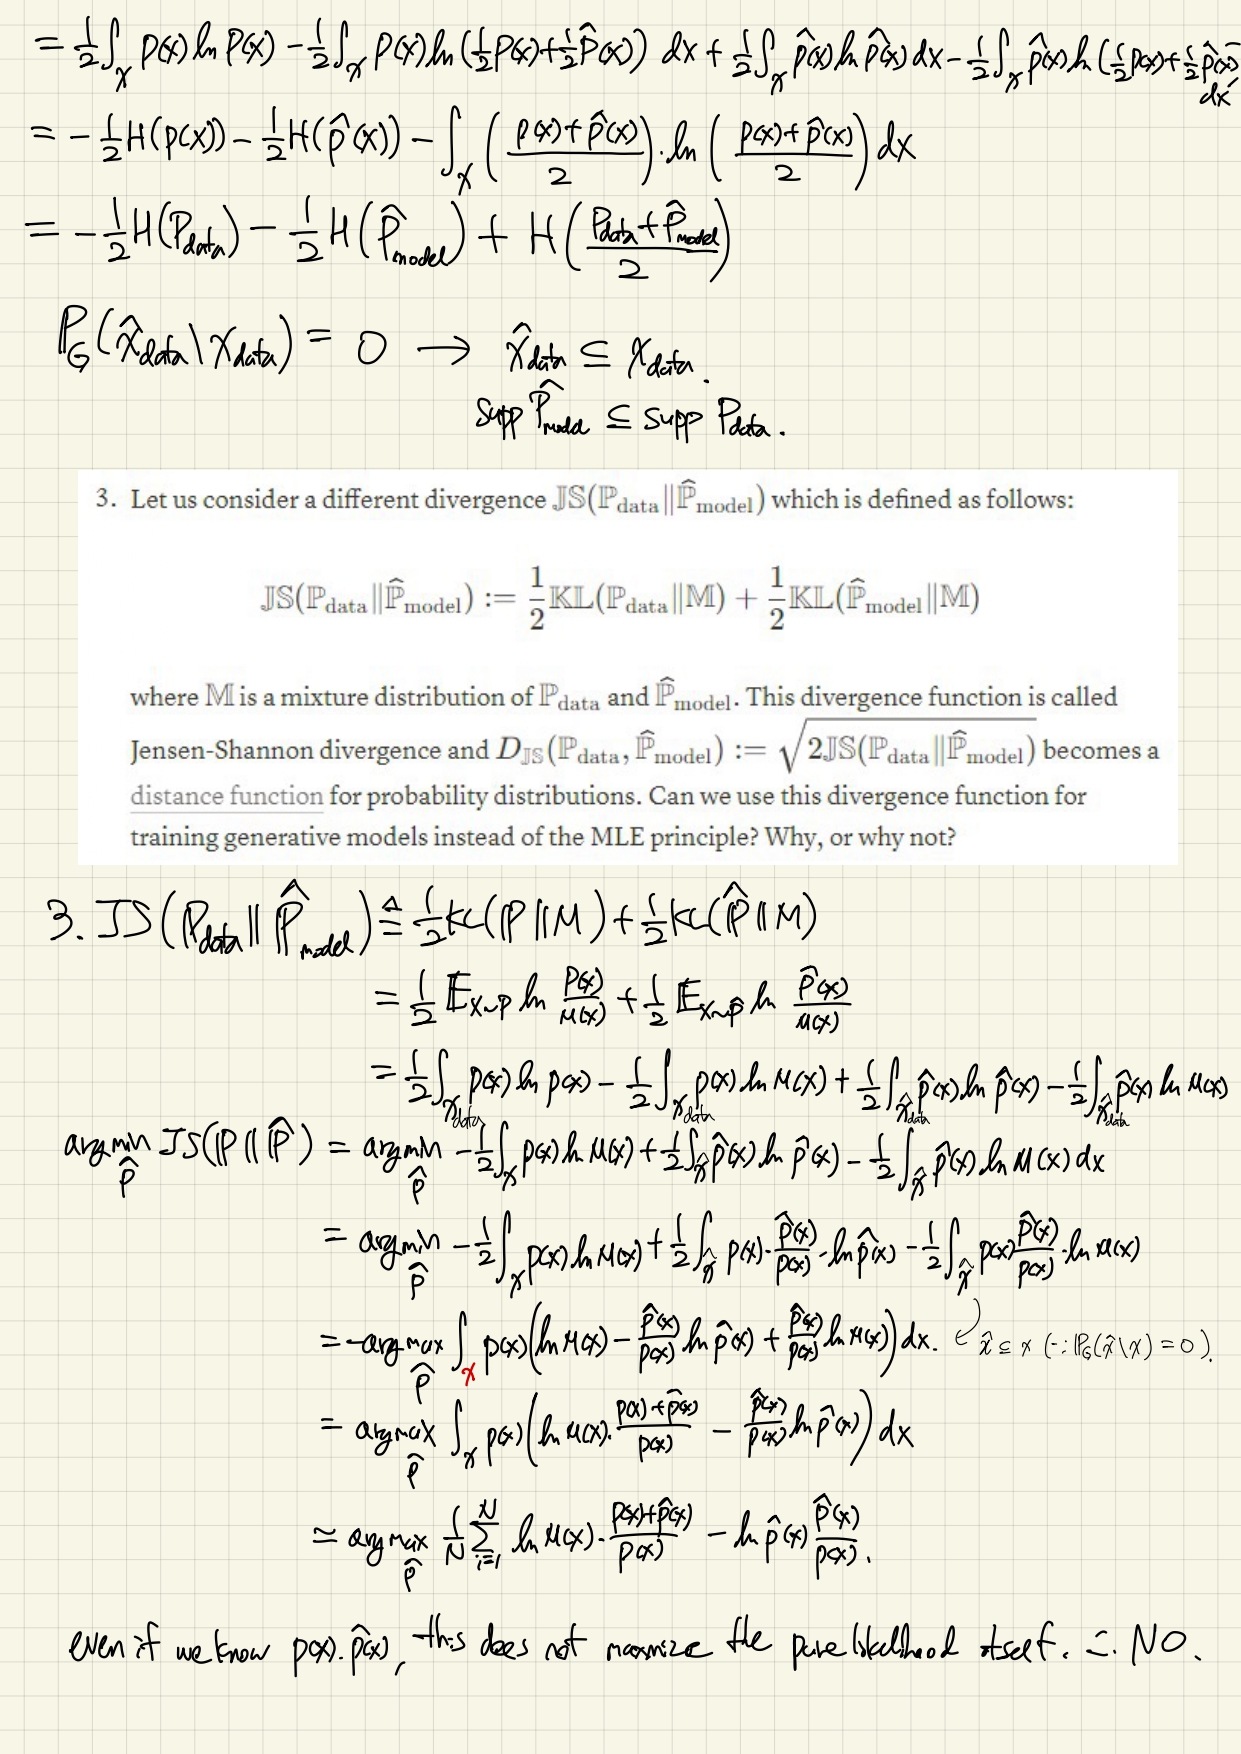 = 1/2 ∫_χ p(x) ln p(x) - 1/2 ∫_χ p(x) ln (1/2 p(x) + 1/2 p̂(x)) dx + 1/2 ∫_χ p̂(x) ln p̂(x) dx - 1/2 ∫_χ p̂(x) ln (1/2 p(x) + 1/2 p̂(x)) dx
= - 1/2 H(p(x)) - 1/2 H(p̂(x)) - ∫_χ ( (p(x) + p̂(x))/2 ) · ln ( (p(x) + p̂(x))/2 ) dx
= - 1/2 H(P_data) - 1/2 H(P̂_model) + H( (P_data + P̂_model)/2 )
ℙ_G(χ̂_data \ χ_data) = 0 → χ̂_data ⊆ χ_data.
supp P̂_model ⊆ supp P_data.
3. Let us consider a different divergence 𝕁𝕊(ℙ_data‖ℙ̂_model) which is defined as follows:
𝕁𝕊(ℙ_data‖ℙ̂_model) := 1/2 𝕂𝕃(ℙ_data‖𝕄) + 1/2 𝕂𝕃(ℙ̂_model‖𝕄)
where 𝕄 is a mixture distribution of ℙ_data and ℙ̂_model. This divergence function is called
Jensen-Shannon divergence and D_𝕁𝕊(ℙ_data, ℙ̂_model) := √(2𝕁𝕊(ℙ_data‖ℙ̂_model)) becomes a
distance function for probability distributions. Can we use this divergence function for
training generative models instead of the MLE principle? Why, or why not?
3. JS(ℙ_data ‖ ℙ̂_model) ≜ 1/2 KL(ℙ‖M) + 1/2 KL(ℙ̂‖M)
= 1/2 𝔼_{x~p} ln p(x)/M(x) + 1/2 𝔼_{x~p̂} ln p̂(x)/M(x)
= 1/2 ∫_{χ_data} p(x) ln p(x) - 1/2 ∫_{χ_data} p(x) ln M(x) + 1/2 ∫_{χ̂_data} p̂(x) ln p̂(x) - 1/2 ∫_{χ̂_data} p̂(x) ln M(x)
argmin_p̂ JS(ℙ‖ℙ̂) = argmin_p̂ - 1/2 ∫_χ p(x) ln M(x) + 1/2 ∫_χ̂ p̂(x) ln p̂(x) - 1/2 ∫_χ̂ p̂(x) ln M(x) dx
= argmin_p̂ - 1/2 ∫_χ p(x) ln M(x) + 1/2 ∫_χ̂ p(x) · p̂(x)/p(x) · ln p̂(x) - 1/2 ∫_χ̂ p(x) p̂(x)/p(x) · ln M(x)
= -argmax_p̂ ∫_χ p(x) ( ln M(x) - p̂(x)/p(x) ln p̂(x) + p̂(x)/p(x) ln M(x) ) dx. χ̂ ⊆ χ (∵ ℙ_G(χ̂\χ) = 0).
= argmax_p̂ ∫_χ p(x) ( ln M(x) · (p(x) + p̂(x))/p(x) - p̂(x)/p(x) ln p̂(x) ) dx
≃ argmax_p̂ 1/N Σ_{i=1}^{N} ln M(x) · (p(x) + p̂(x))/p(x) - ln p̂(x) p̂(x)/p(x).
even if we know p(x). p̂(x), this does not maximize the pure likelihood itself. ∴ NO.